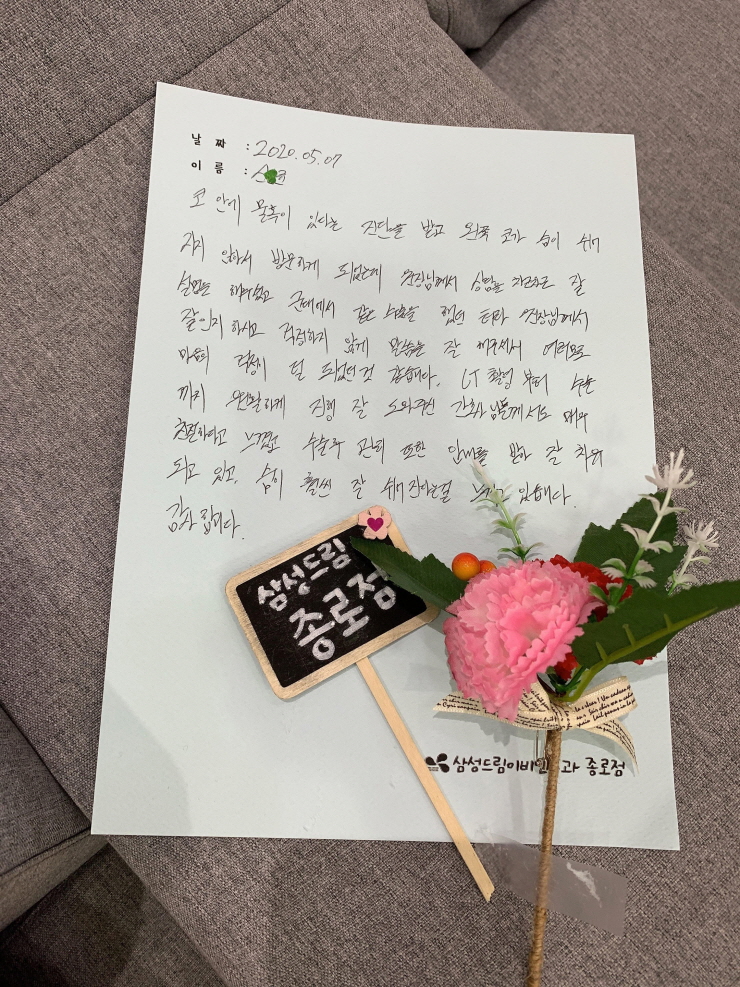 날 짜 : 2020.05.07
이 름 :
코 안에 물혹이 있다는 진단을 받고 왼쪽 코가 숨이 쉬어
지지 않아서 방문하게 되었는데 원장님께서 상담을 차근차근 잘
설명을 해주셨고 군대에서 같은 수술을 했던 터라 원장님께서
잘 인지하시고 걱정하지 않게 말씀을 잘 해주셔서 여러모로
마음의 걱정이 덜 되었던 것 같습니다. CT 촬영 부터 수술
까지 원활하게 진행 잘 도와주신 간호사님들께서도 매우
친절하다고 느꼈고 수술후 관리 또한 안내를 받아 잘 치료
되고 있고, 숨이 훨씬 잘 쉬어 진다는걸 느끼고 있습니다.
감사합니다.
삼성드림
종로점
삼성드림이비인 과 종로점